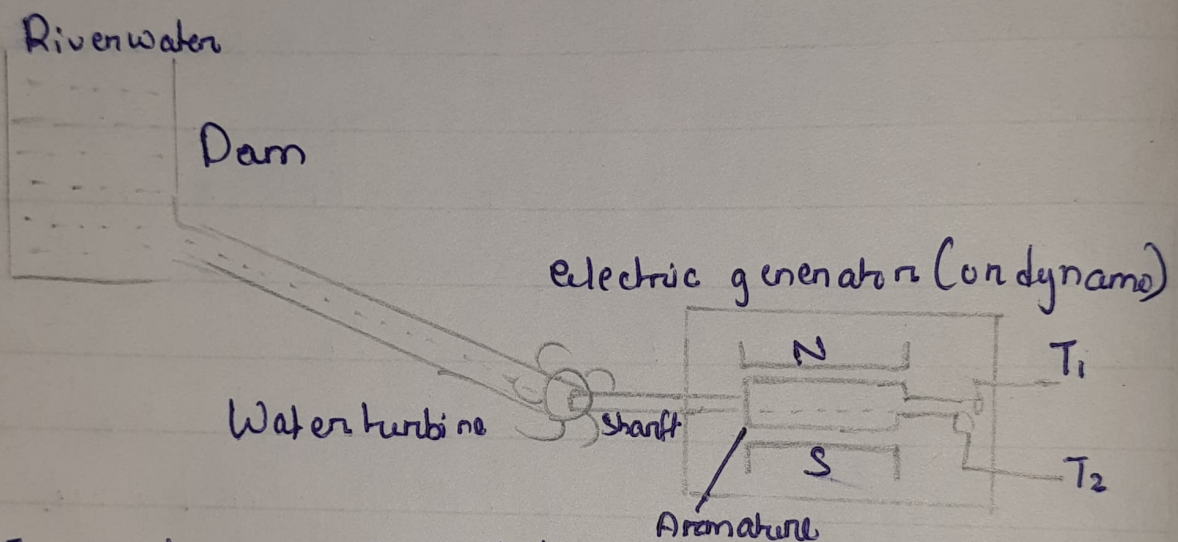 River water
Dam
electric generator (or dynamo)
N
T1
Water turbine
Sharft
S
T2
Aramature